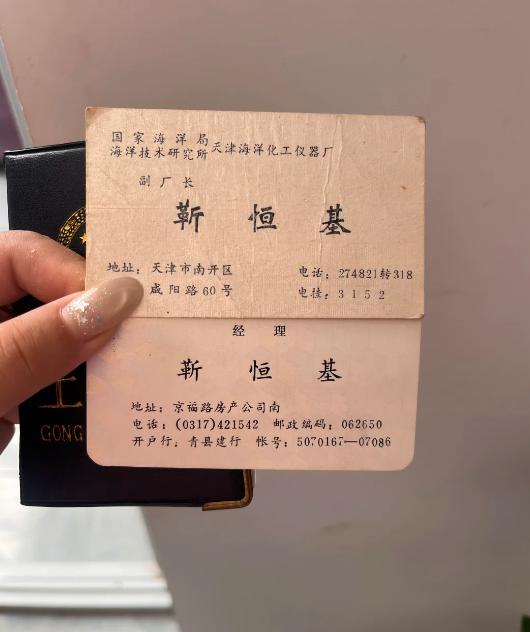 国家海洋局
海洋技术研究所 天津海洋化工仪器厂
副厂长
靳恒基
地址：天津市南开区
咸阳路60号
电话：274821转318
电挂：3152
经理
靳恒基
地址：京福路房产公司南
电话：(0317)421542 邮政编码：062650
开户行：青县建行 帐号：5070167—07086
GONG